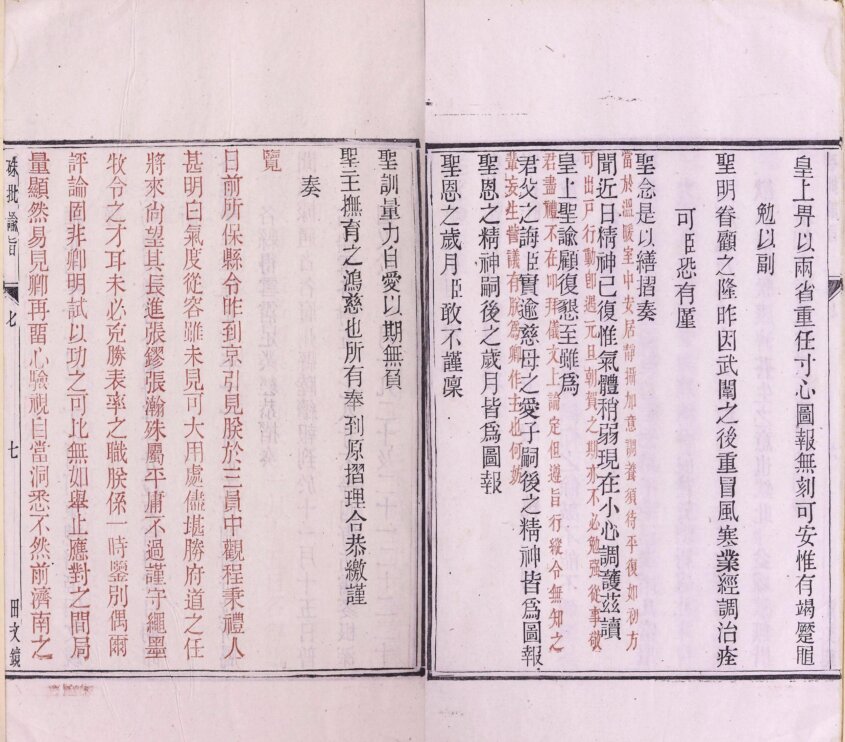 皇上畀以兩省重任寸心圖報無刻可安惟有竭蹷駈
勉以副
聖明眷顧之隆昨因武闈之後重冒風寒業經調治痊
可臣恐有厪
聖念是以繕摺奏
當於溫暖室中安居靜攝加意調養須待平復如初方
聞近日精神已復惟氣體稍弱現在小心調護茲讀
可出戸行動卽遇元旦朝賀之期亦不必勉强從事敬
皇上聖諭顧復懇至雖爲
君盡禮不在叩拜儀文上論定但遵旨行縱令無知之
君父之誨臣實逾慈母之愛子嗣後之精神皆爲圖報
輩妄生訾議有朕爲卿作主也何妨
聖恩之精神嗣後之歲月皆爲圖報
聖恩之歲月臣敢不謹凜
聖訓量力自愛以期無負
聖主撫育之鴻慈也所有奉到原摺理合恭繳謹
奏
覽
日前所保縣令昨到京引見朕於三員中觀程秉禮人
甚明白氣度從容雖未見可大用處儘堪勝府道之任
將來尙望其長進張鏐張瀚殊屬平庸不過謹守繩墨
牧令之才耳未必克勝表率之職朕係一時鑒別偶爾
評論固非卿明試以功之可比無如舉止應對之間局
量顯然易見卿再畱心驗視自當洞悉不然前濟南之
硃批諭旨
七
田文鏡